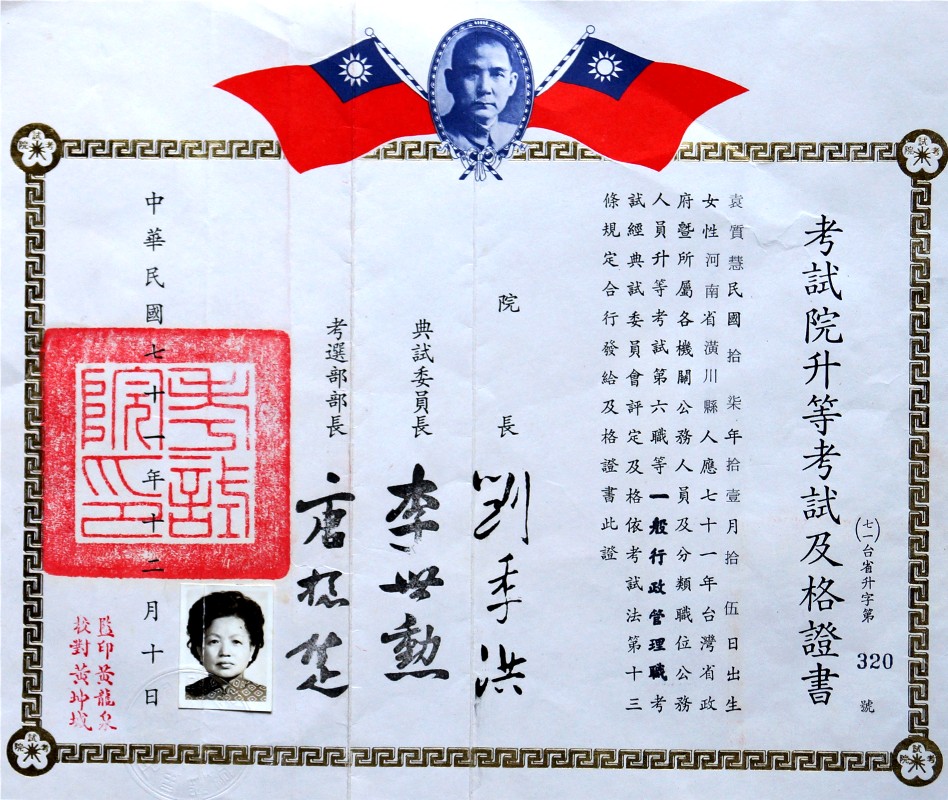 考試院升等考試及格證書
(七一)台省升字第320號
袁質慧民國拾柒年拾壹月拾伍日出生
女性河南省潢川縣人應七十一年台灣省政
府暨所屬各機關公務人員及分類職位公務
人員升等考試第六職等一般行政管理職考
試經典試委員會評定及格依考試法第十三
條規定合行發給及格證書此證
院長 劉季洪
典試委員長 李世勲
考選部部長 唐振楚
中華民國七十一年十二月十日
考試院印
監印黃龍泉
校對黃坤城
考試院
考試院
考試院
考試院